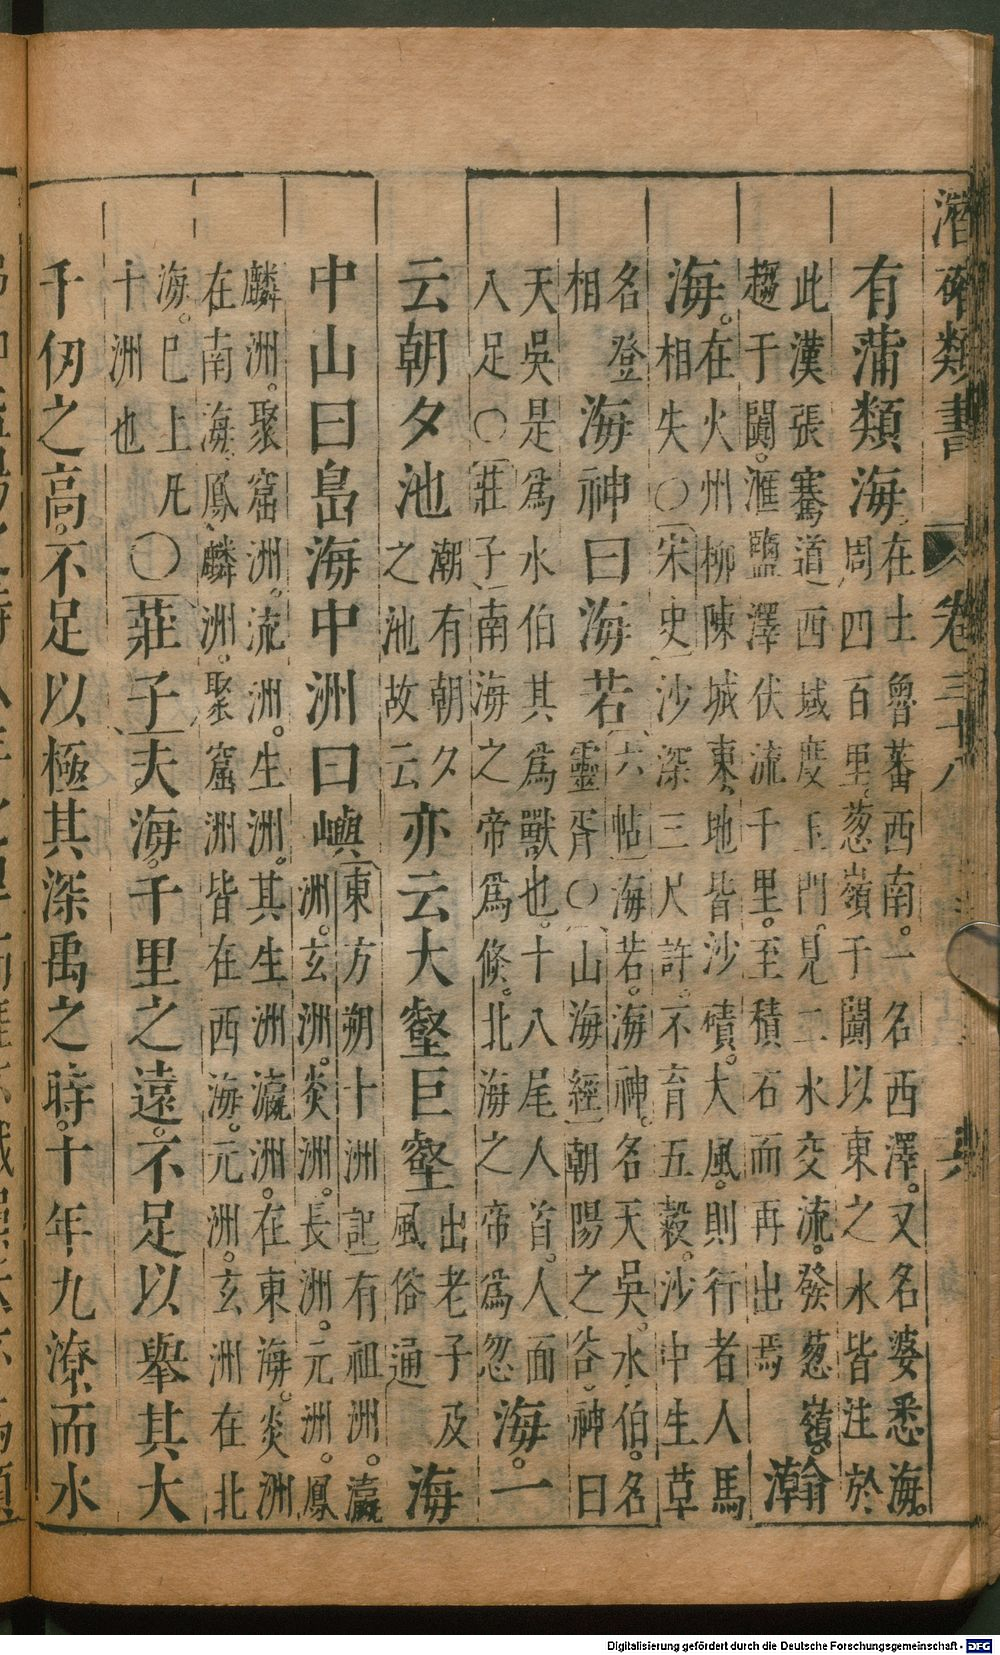 潛確類書 卷三十八
有蒲類海
在土魯蕃西南。一名西澤。又名婆悉海。
周四百里。葱嶺于闐以東之水皆注於
此漢張騫道西域度玉門。見二水交流。發葱嶺。
趨于闐。滙鹽澤伏流千里。至積石而再出焉
瀚
海。
在火州柳陳城東、地皆沙磧。大風。則行者人馬
相失〇宋史沙深三尺許。不育五穀。沙中生草
名登
相
海神曰海若
六帖海若。海神。名天吳。水伯。名
靈胥〇山海經朝陽之谷。神曰
天吳是爲水伯其爲獸也。十八尾人首。人面
八足〇莊子南海之帝爲倐。北海之帝爲忽
海。一
云朝夕池
潮有朝夕
之池故云
亦云大壑巨壑
出老子及
風俗通
海
中山曰島海中洲曰嶼
東方朔十洲記有祖洲。瀛
洲。玄洲。炎洲。長洲。元洲。鳳
麟洲。聚窟洲。流洲。生洲。其生洲瀛洲。在東海。炎洲
在南海、鳳麟洲。聚窟洲皆在西海。元洲。玄洲在北
海。巳上凡
十洲也
〇莊子夫海。千里之遠。不足以舉其大
千仞之高。不足以極其深禹之時。十年九潦而水
Digitalisierung gefördert durch die Deutsche Forschungsgemeinschaft - DFG